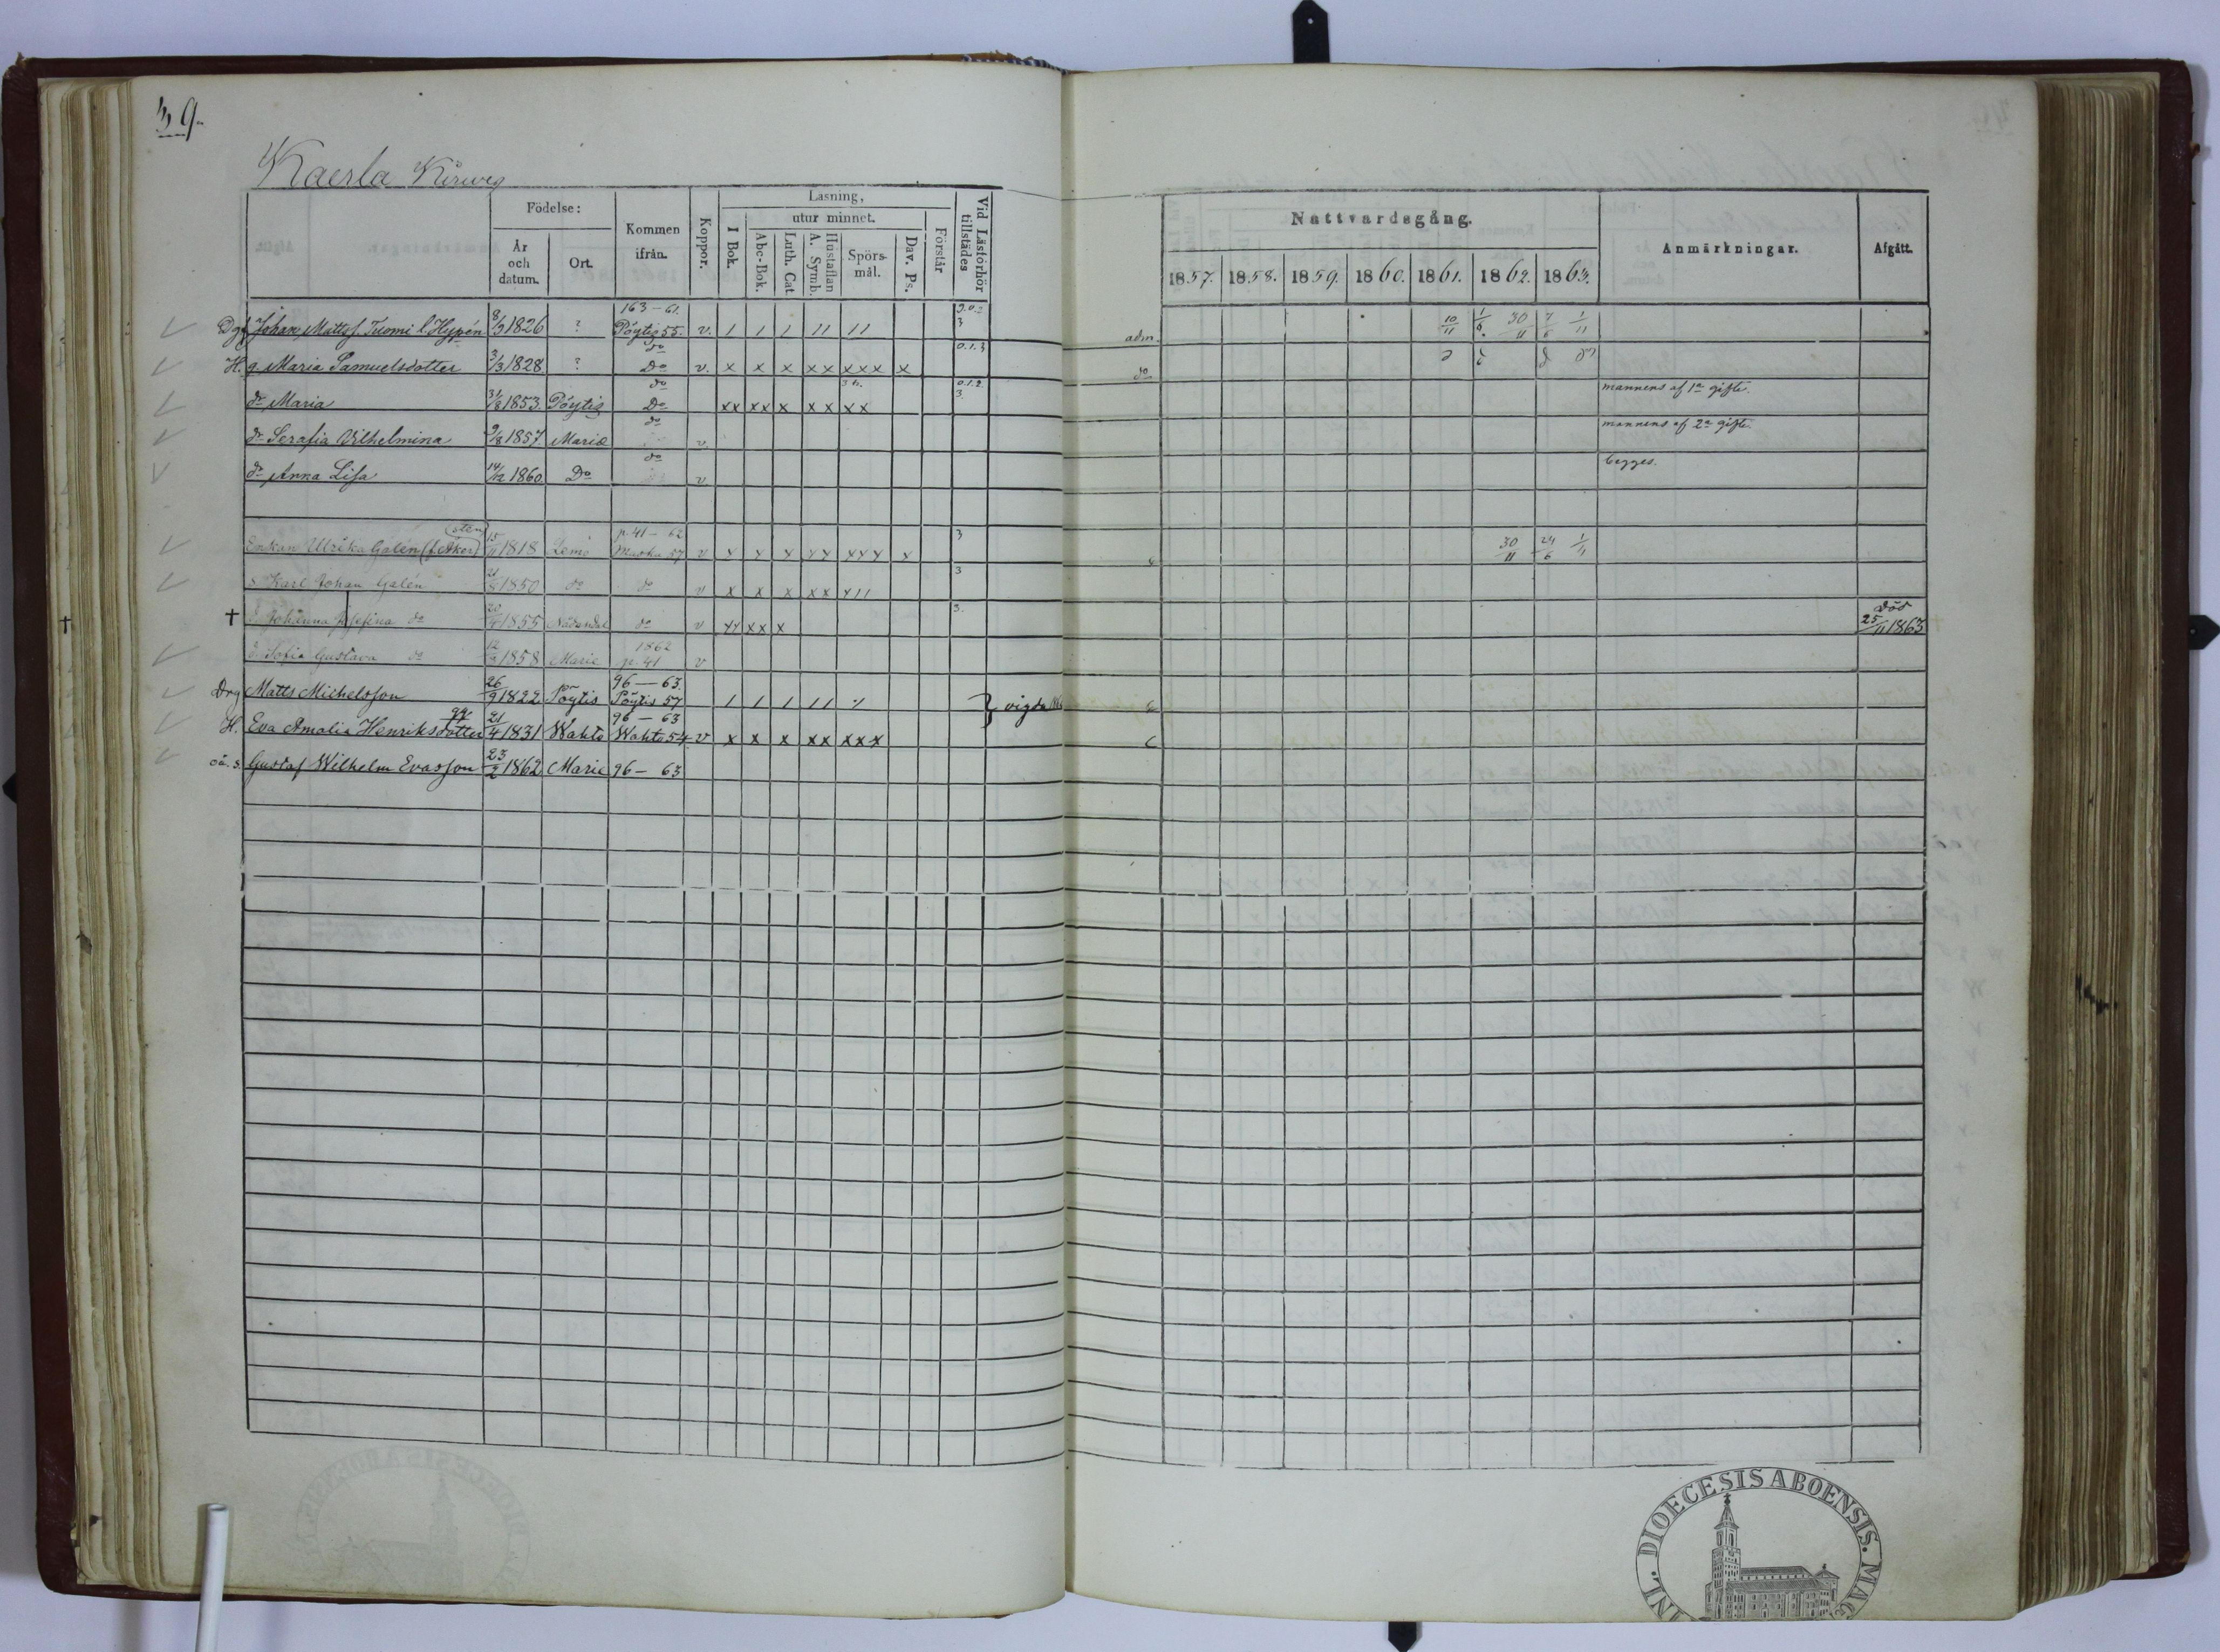 39.
Kaerla
Födelse:
År och datum.
Ort.
Kommen ifrån.
Koppor.
Läsning,
I Bok.
utur minnet.
Abc-Bok.
Luth. Cat.
Hustaflan A. Symb.
Spörsmål.
Dav. Ps.
Förstår
Vid Läsförhör tillstädes
Nattvardsgång.
1857. 1858. 1859. 1860. 1861. 1862. 1863.
Anmärkningar.
Afgått.
163-61.
Johan Mattsf. Tuomi l. Hypén 8/9 1826 ? Pöytis 55. v. / / / // // 3 adm. 10/11 30/11 7/6 1/11
do 0.1.3
H. g. Maria Samuelsdotter 3/3 1828 ? Do v. x x x xx xxx x do
do 0.1.2.
dr Maria 31/8 1853. Pöytis Do xx xx x xx xx 3. mannens af 1a gifte.
do
dr Serafia Wilhelmina 9/8 1857 Mariæ v mannens af 2a gifte.
do
dr Anna Lisa 14/12 1860. Do v begges.
p. 41-62
Enkan Ulrika Galén 15/11 1818 Lemo Masku 57 v x x x xx xxx x 3 30/11 24/6 1/11
s Karl Johan Galén 1850 do do v x x x xx x// 3
† Johanna Josefina do 20/4 1855 Nådendal do v xx xx x 3. död 25/11 1863
1862
Sofia Gustava do 1858 Marie p. 41 v
96-63.
Drg Matts Michelsson 26/9 1822 Pöytis Pöytis 57 / / / // } vigda
96-63
H. Eva Amalia Henriksdotter 21/4 1831 Wahto Wahto 54 v x x x xx xxx
oä. s. Gustaf Wilhelm Evasson 23/2 1862 Marie 96-63
DIOECESIS ABOENSIS. MAG
INL.